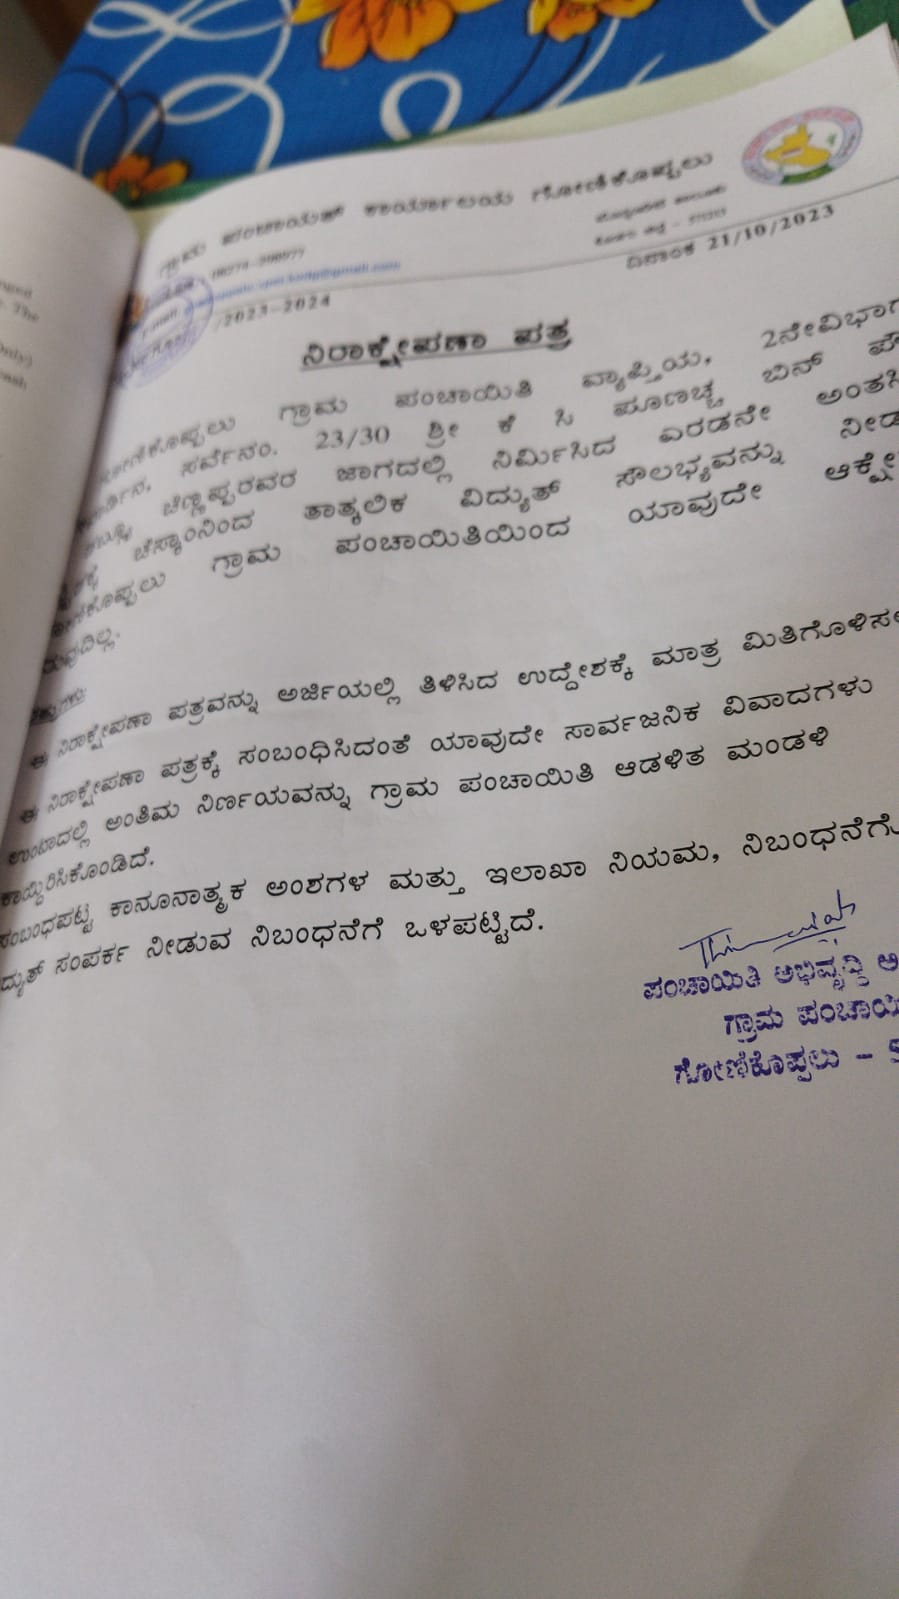 ged
The
Only)
ಗ್ರಾಮ ಪಂಚಾಯತ್ ಕಾರ್ಯಾಲಯ ಗೋಣಿಕೊಪ್ಪಲು
08274-
ದಿನಾಂಕ 21/10/2023
/2023-2024
ನಿರಾಕ್ಷೇಪಣಾ ಪತ್ರ
ಗೋಣಿಕೊಪ್ಪಲು ಗ್ರಾಮ ಪಂಚಾಯಿತಿ ವ್ಯಾಪ್ತಿಯ, 2ನೇವಿಭಾಗ
ಸರ್ವೆನಂ. 23/30 ಶ್ರೀ ಕೆ ಸಿ ಪೂಣಚ್ಚ ಬಿನ್ ಪೌ
ಚಿಣ್ಣಪ್ಪರವರ ಜಾಗದಲ್ಲಿ ನಿರ್ಮಿಸಿದ ಎರಡನೇ ಅಂತಸಿ
ಚೆಸ್ಕಾಂನಿಂದ ತಾತ್ಕಲಿಕ ವಿದ್ಯುತ್ ಸೌಲಭ್ಯವನ್ನು ನೀಡ
ಗೋಣಿಕೊಪ್ಪಲು ಗ್ರಾಮ ಪಂಚಾಯಿತಿಯಿಂದ ಯಾವುದೇ ಆಕ್ಷೇ
ರುವುದಿಲ್ಲ.
ಈ ನಿರಾಕ್ಷೇಪಣಾ ಪತ್ರವನ್ನು ಅರ್ಜಿಯಲ್ಲಿ ತಿಳಿಸಿದ ಉದ್ದೇಶಕ್ಕೆ ಮಾತ್ರ ಮಿತಿಗೊಳಿಸಲ
ಈ ನಿರಾಕ್ಷೇಪಣಾ ಪತ್ರಕ್ಕೆ ಸಂಬಂಧಿಸಿದಂತೆ ಯಾವುದೇ ಸಾರ್ವಜನಿಕ ವಿವಾದಗಳು
ಉಂಟಾದಲ್ಲಿ ಅಂತಿಮ ನಿರ್ಣಯವನ್ನು ಗ್ರಾಮ ಪಂಚಾಯಿತಿ ಆಡಳಿತ ಮಂಡಳಿ
ಕಾಯ್ದಿರಿಸಿಕೊಂಡಿದೆ.
ಸಂಬಂಧಪಟ್ಟ ಕಾನೂನಾತ್ಮಕ ಅಂಶಗಳ ಮತ್ತು ಇಲಾಖಾ ನಿಯಮ, ನಿಬಂಧನೆಗೆ
ದ್ಯುತ್ ಸಂಪರ್ಕ ನೀಡುವ ನಿಬಂಧನೆಗೆ ಒಳಪಟ್ಟಿದೆ.
ಪಂಚಾಯಿತಿ ಅಭಿವೃದ್ಧಿ ಅ
ಗ್ರಾಮ ಪಂಚಾಯಿ
ಗೋಣಿಕೊಪ್ಪಲು - 5